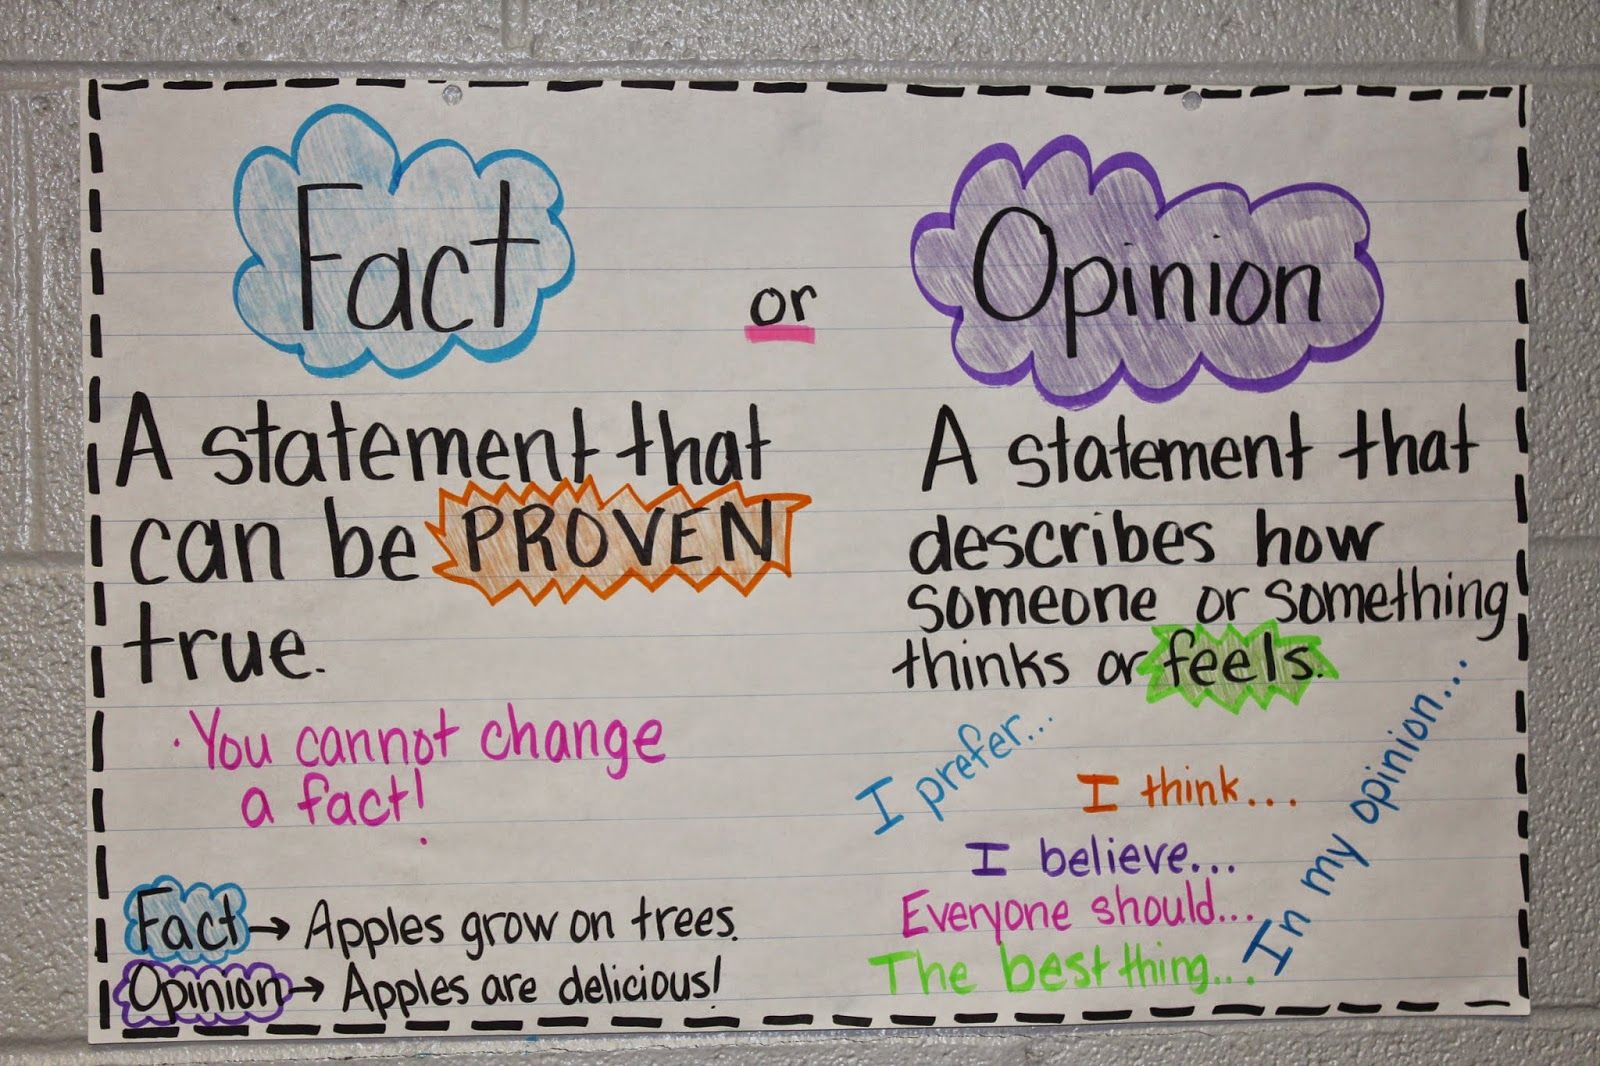 Fact or Opinion
A statement that
can be PROVEN
true.
· You cannot change
a fact!
Fact → Apples grow on trees.
Opinion → Apples are delicious!
A statement that
describes how
someone or something
thinks or feels.
I prefer...
I think...
I believe...
Everyone should...
The best thing...
In my opinion...